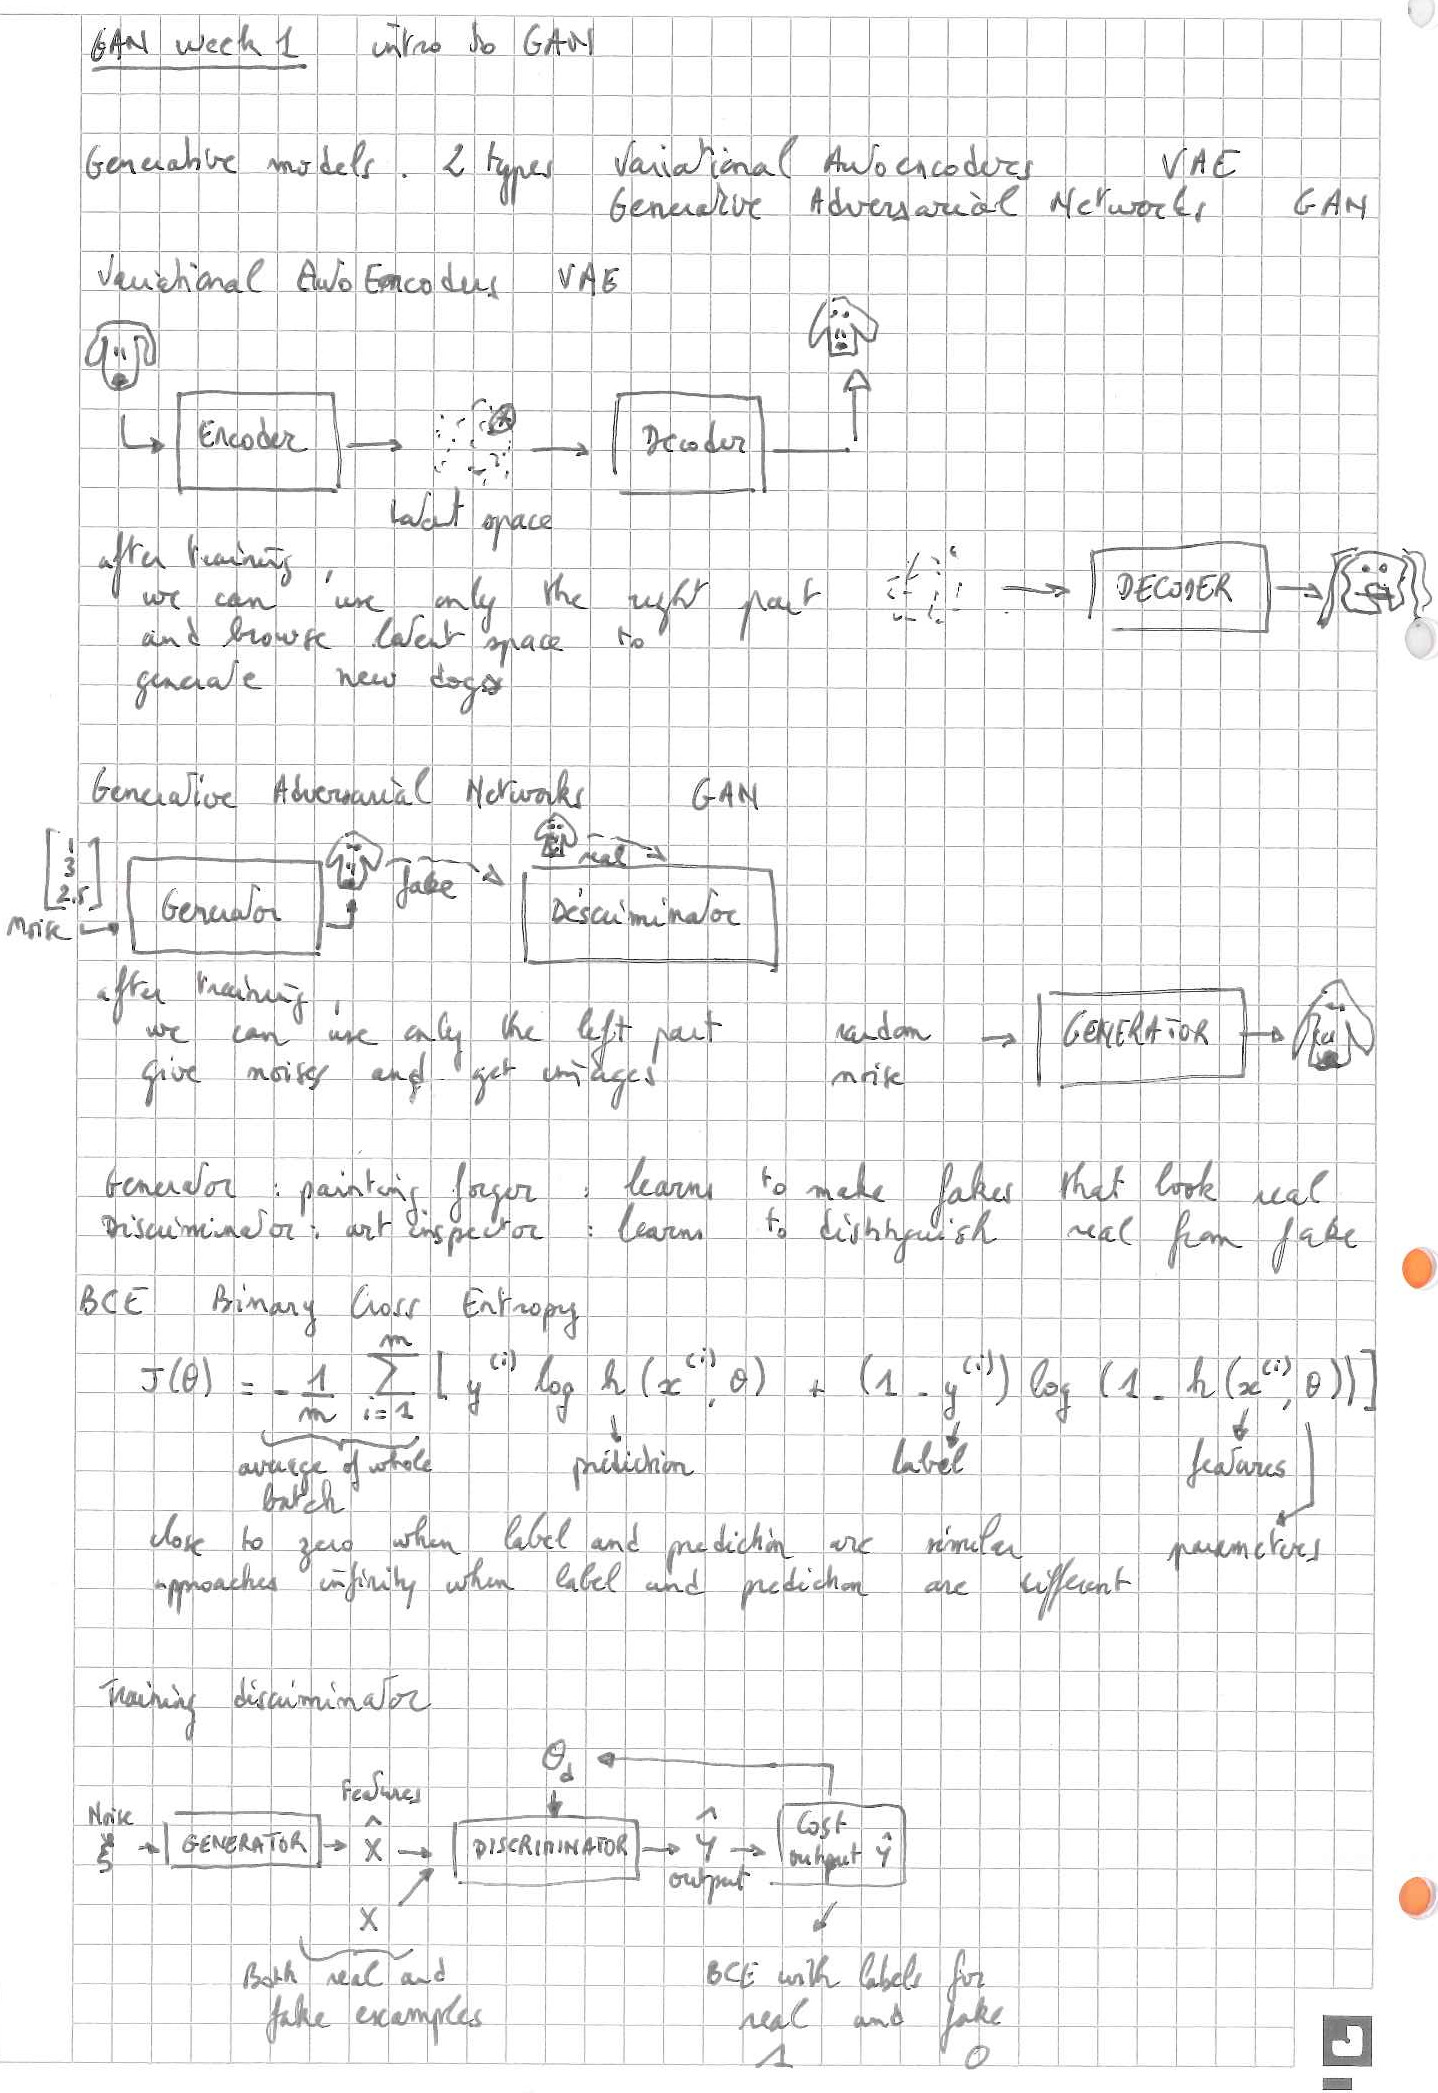 GAN week 1 intro to GAN
Generative models . 2 types Variational Autoencoders VAE
Generative Adversarial Networks GAN
Variational AutoEncoders VAE
Encoder
Decoder
Latent space
after training,
we can use only the right part
and browse latent space to
generate new dogs
DECODER
Generative Adversarial Networks GAN
1
3
2.5
noise
Generator
fake
real
Discriminator
after training,
we can use only the left part
give noises and get images
random
noise
GENERATOR
Generator : painting forger : learns to make fakes that look real
Discriminator : art inspector : learns to distinguish real from fake
BCE Binary Cross Entropy
J(θ) = - 1/m Σ_{i=1}^{m} [ y^{(i)} log h(x^{(i)}, θ) + (1 - y^{(i)}) log (1 - h(x^{(i)}, θ))]
average of whole
batch
prediction
label
features
parameters
close to zero when label and prediction are similar
approaches infinity when label and prediction are different
Training discriminator
θd
Features
Noise
ξ
GENERATOR
X̂
DISCRIMINATOR
Ŷ
output
Cost
output Ŷ
X
Both real and
fake examples
BCE with labels for
real and fake
1 0